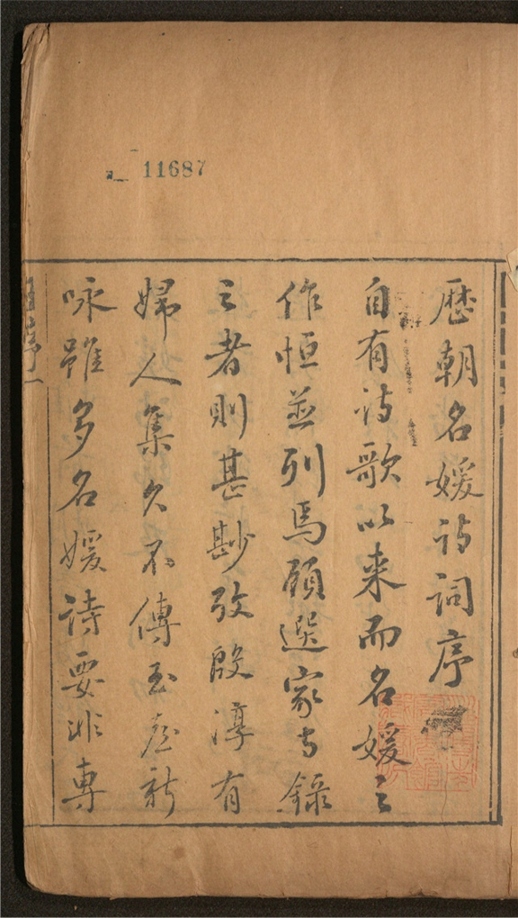 11687
歷朝名媛詩詞序
自有詩歌以来而名媛之
作恒並列焉顧選家専錄
之者則甚尠攷殷淳有
婦人集久不傳玉臺新
咏雖多名媛詩要非專
序一